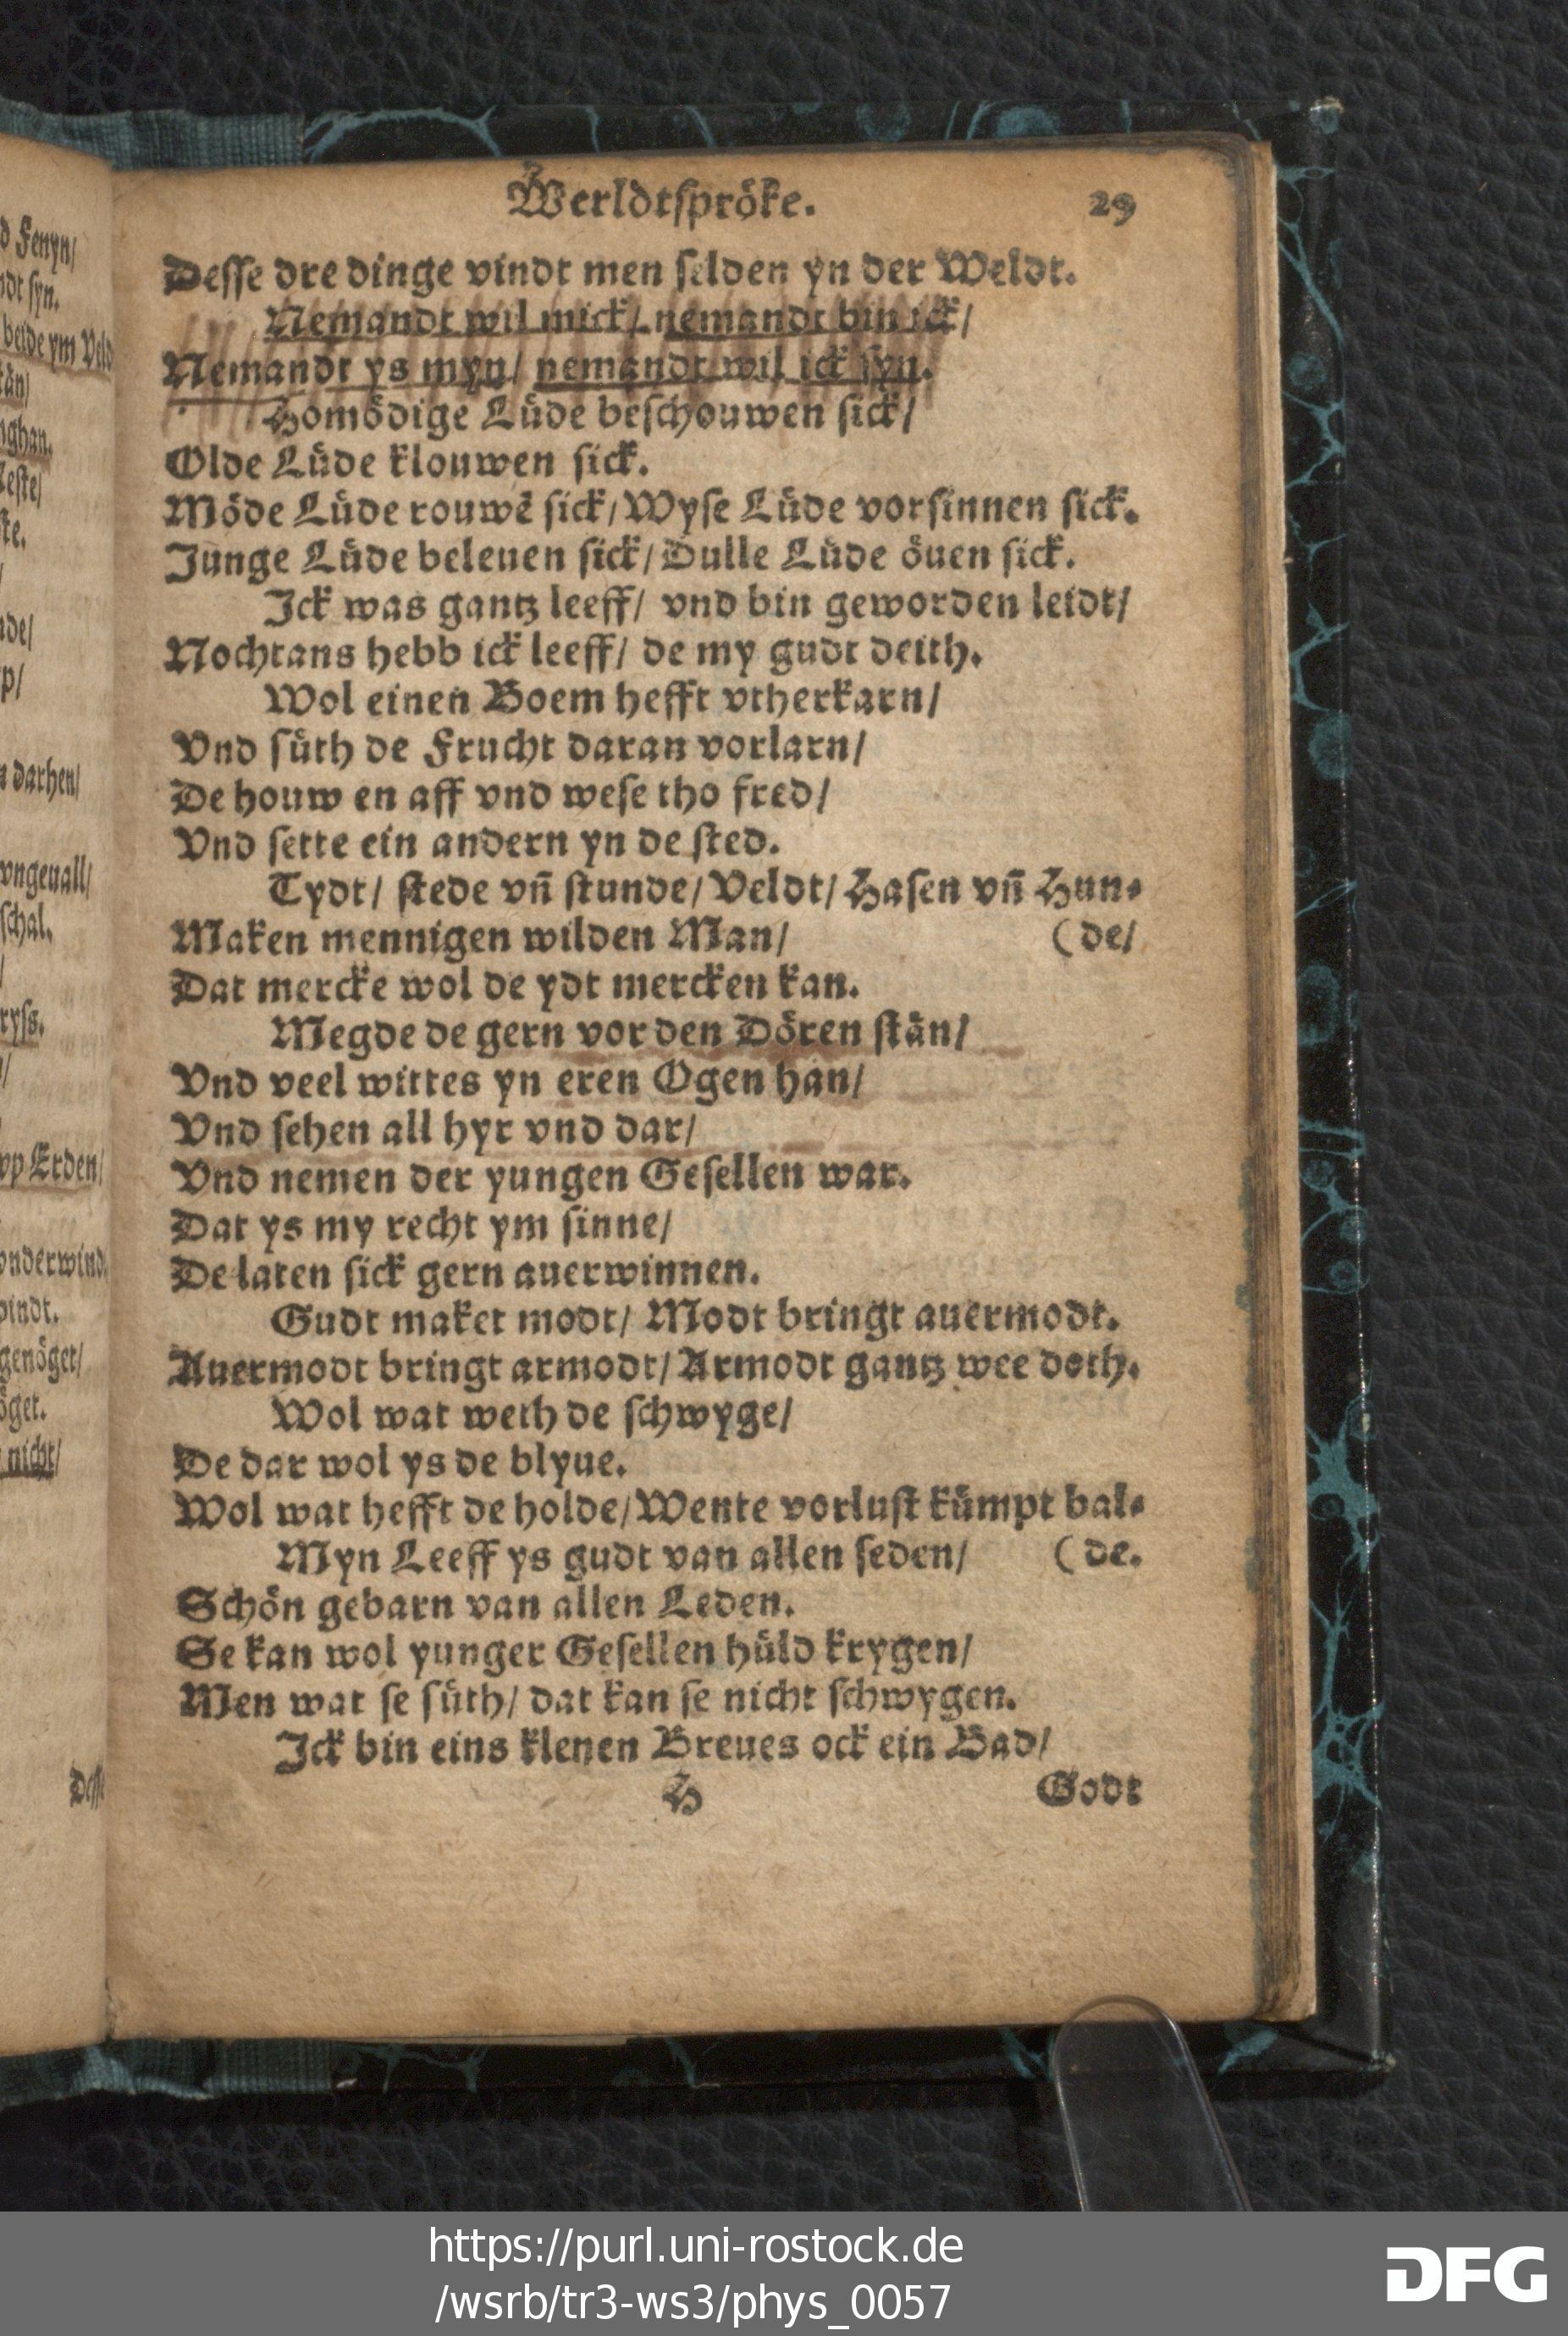 Werldtspröke. 29
Desse dre dinge vindt men selden yn der Weldt.
Nemandt wil mick/ nemandt bin ick/
Nemandt ys myn/ nemandt wil ick syn.
Homödige Lüde beschouwen sick/
Olde Lüde klouwen sick.
Möde Lüde rouwē sick/ Wyse Lüde vorsinnen sick.
Junge Lüde beleuen sick/ Dulle Lüde öuen sick.
Ick was gantz leeff/ vnd bin geworden leidt/
Nochtans hebb ick leeff/ de my gudt deith.
Wol einen Boem hefft vtherkarn/
Vnd süth de Frucht daran vorlarn/
De houw en aff vnd wese tho fred/
Vnd sette ein andern yn de sted.
Tydt/ stede vñ stunde/ Veldt/ Hasen vñ Hun-
Maken mennigen wilden Man/ (de/
Dat mercke wol de ydt mercken kan.
Megde de gern vor den Dören stän/
Vnd veel wittes yn eren Ogen han/
Vnd sehen all hyr vnd dar/
Vnd nemen der yungen Gesellen war.
Dat ys my recht ym sinne/
De laten sick gern auerwinnen.
Gudt maket modt/ Modt bringt auermodt.
Auermodt bringt armodt/ Armodt gantz wee doth.
Wol wat weth de schwyge/
De dar wol ys de blyue.
Wol wat hefft de holde/ Wente vorlust kümpt bal-
Myn Leeff ys gudt van allen seden/ (de.
Schön gebarn van allen Leden.
Se kan wol yunger Gesellen hüld krygen/
Men wat se süth/ dat kan se nicht schwygen.
Ick bin eins klenen Breues ock ein Bad/
H Godt
d Fenyn/
ndt syn.
beide ym Veld
tän/
nghan.
leste/
ste.
nde/
p/
n darhen/
vngeuall/
schal.
ryss.
vp Erden/
onderwind.
vindt.
genöget/
öget.
nicht/
Desse
https://purl.uni-rostock.de
/wsrb/tr3-ws3/phys_0057
DFG